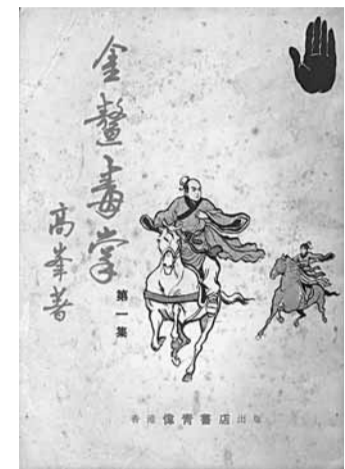 金鼇毒掌
高峯著
第一集
香港偉青書店出版